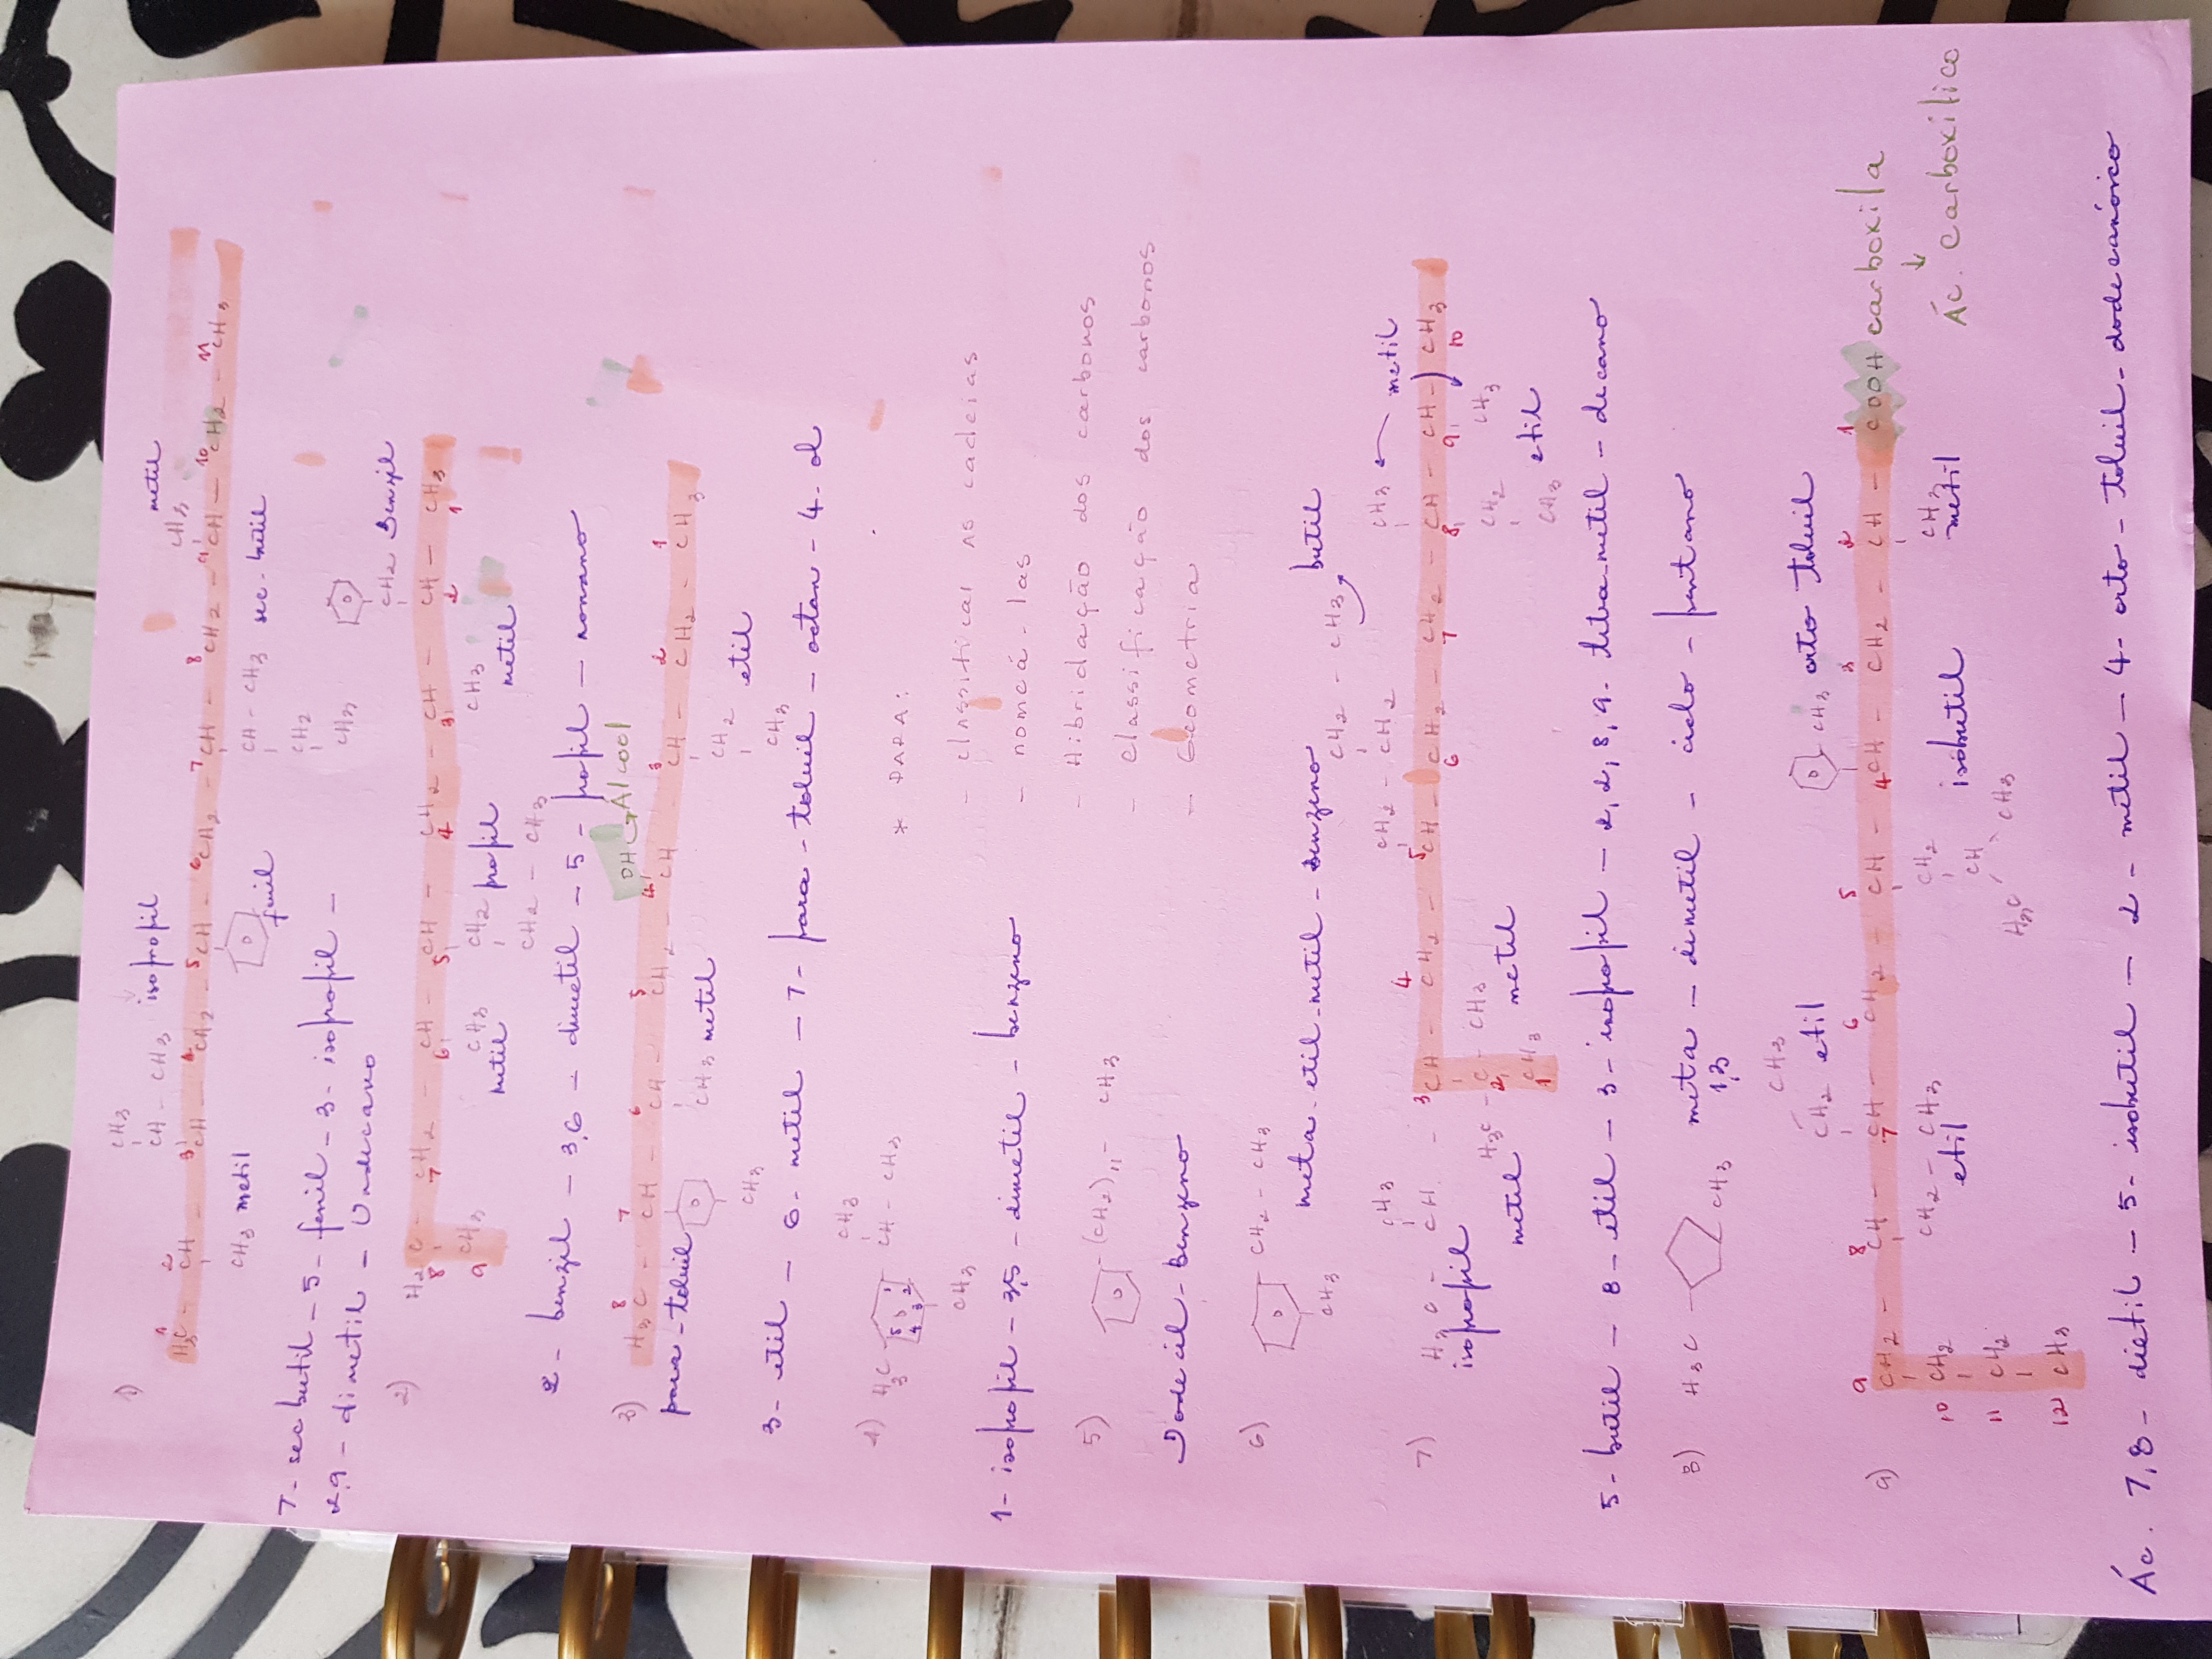 1)
CH3
CH - CH3 isopropil
metil
CH3
1 2 3 4 5 6 7 8 9 10 11
H3C - CH - CH - CH2 - CH - CH2 - CH - CH2 - CH - CH2 - CH3
CH3 metil
fenil
CH - CH3 sec-butil
CH2
CH3
7- sec butil - 5- fenil - 3- isopropil -
2,9 - dimetil - Undecano
2)
CH2 Benzil
H2 C - CH2 - CH - CH - CH2 - CH - CH - CH3
8 7 6 5 4 3 2 1
9 CH3
CH3 metil
CH2 propil
CH3 metil
CH2 - CH3
2- benzil - 3,6 - dimetil - 5 - propil - nonano
3)
OH Álcool
8 7 6 5 4 3 2 1
H3C - CH - CH - CH2 - CH - CH - CH2 - CH3
para-toluil
CH3 metil
CH2 etil
CH3
CH3
3- etil - 6- metil - 7- para-toluil - octan - 4- ol
4)
CH3
H3C CH - CH3
5 1
4 3 2
CH3
1- isopropil - 3,5 - dimetil - benzeno
* PARA:
- classificar as cadeias
- nomeá-las
- Hibridação dos carbonos
- Classificação dos carbonos
- Geometria
5)
-(CH2)11- CH3
Dodecil-Benzeno
6)
CH2 - CH3
CH3
meta-etil-metil-Benzeno
butil
CH2 - CH3
7)
CH3
CH2 - CH2
CH3 metil
H3C - CH - CH - CH2 - CH - CH2 - CH2 - CH - CH - CH3
3 4 5 6 7 8 9 10
isopropil
H3C - C - CH3
2
metil metil
CH3
1
CH2
CH3 etil
CH3
5- butil - 8- etil - 3- isopropil - 2,2,8,9- tetra-metil - decano
8)
H3C CH3
meta - dimetil - ciclo - pentano
1,3
CH3
CH2 etil
CH3 orto toluil
9)
9 8 7 6 5 4 3 2 1
CH2 - CH - CH - CH2 - CH - CH - CH2 - CH - COOH carboxila
Ác. Carboxílico
10 CH2
CH2 - CH3
etil
CH2
isobutil
CH3
metil
11 CH2
CH
H3C CH3
12 CH3
Ác. 7,8- dietil - 5- isobutil - 2- metil - 4- orto - toluil-dodecanóico